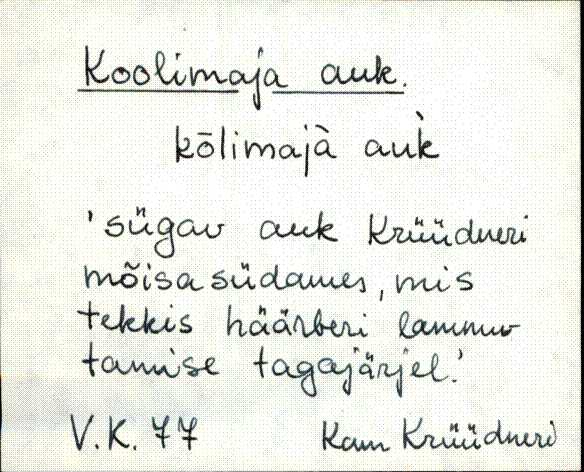 Koolimaja auk.
kōlimajà auk̀
'sügav auk Krüüdneri
mõisasüdames, mis
tekkis häärberi lammu-
tamise tagajärjel.'
V.K. 77 Kam Krüüdneri